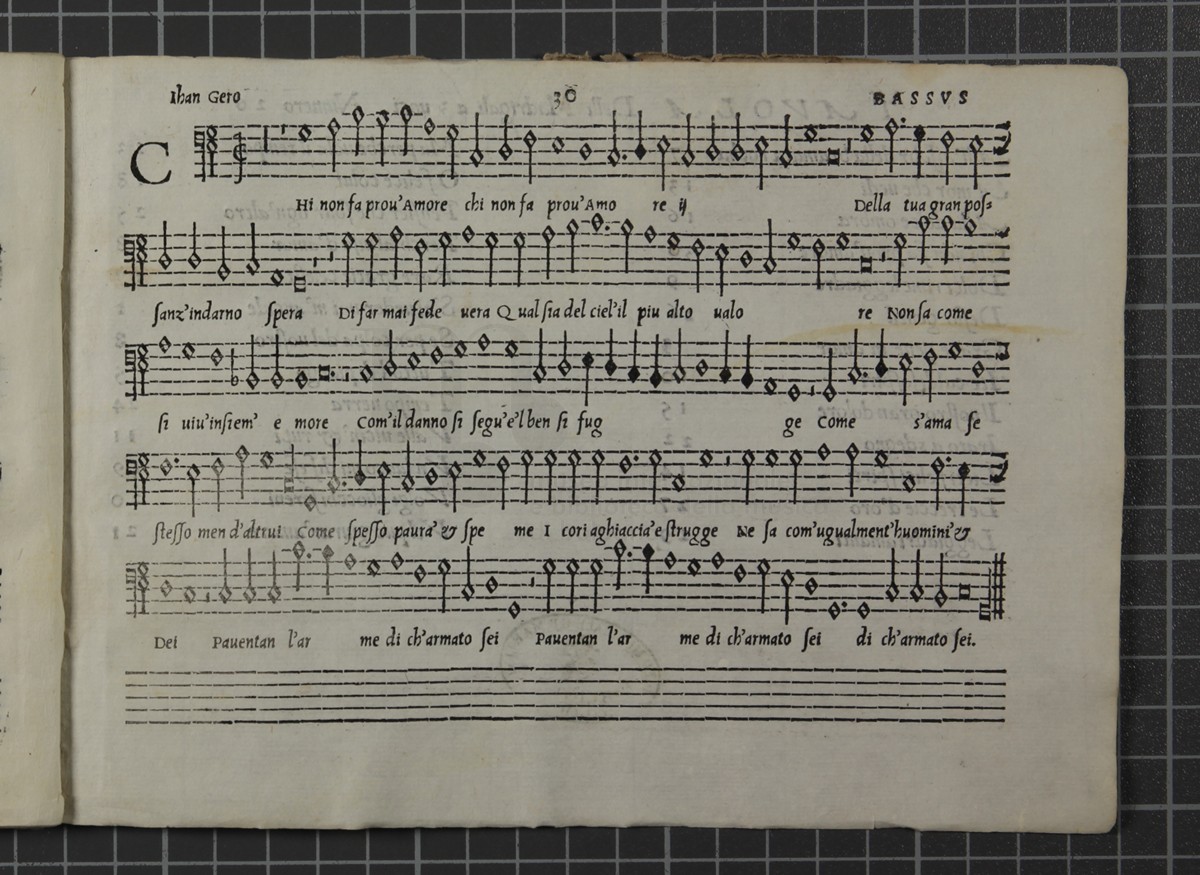 Ihan Gero 30 BASSVS
CHi non fa prou'Amore chi non fa prou'Amo re ij Della tua gran poſs
ſanz'indarno ſpera Di far mai fede uera Qual ſia del ciel'il piu alto ualo re Non ſa come
ſi uiu'inſiem' e more Com'il danno ſi ſegu'e'l ben ſi fug ge Come s'ama ſe
ſteſſo men d'altrui Come ſpeſſo paura' & ſpe me I cori aghiaccia'e ſtrugge Ne ſa com'ugualment'huomini' &
Dei Pauentan l'ar me di ch'armato ſei Pauentan l'ar me di ch'armato ſei di ch'armato ſei.